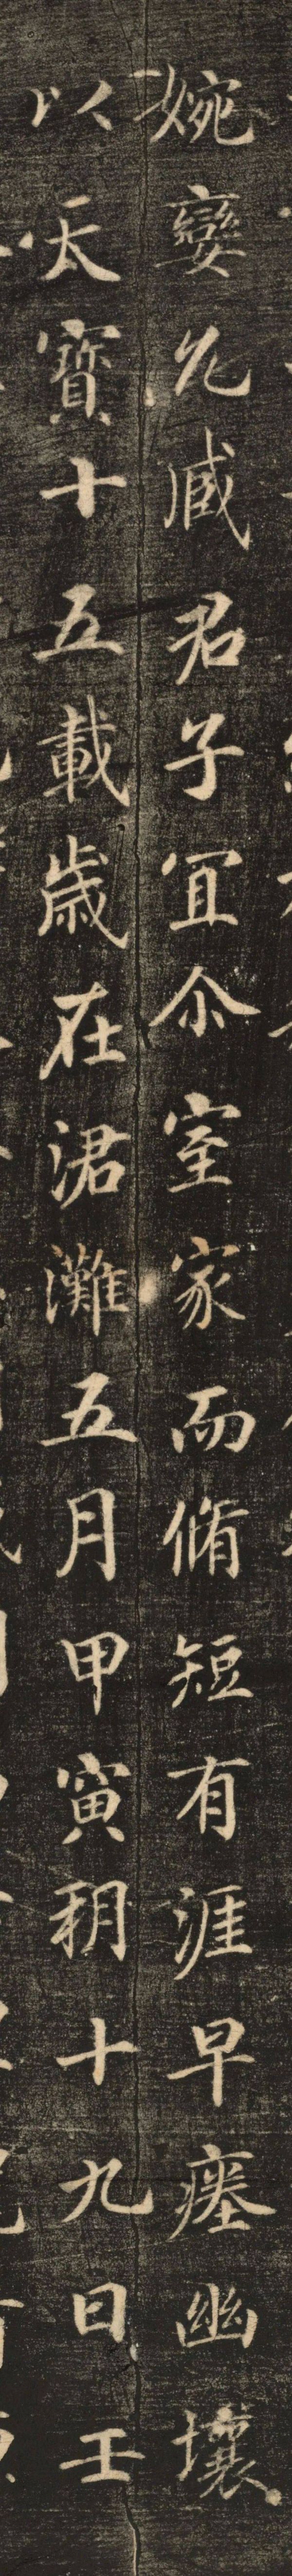 婉孌允臧君子宜尒室家而脩短有涯早瘞幽壤
以天寶十五載歲在涒灘五月甲寅朔十九日壬